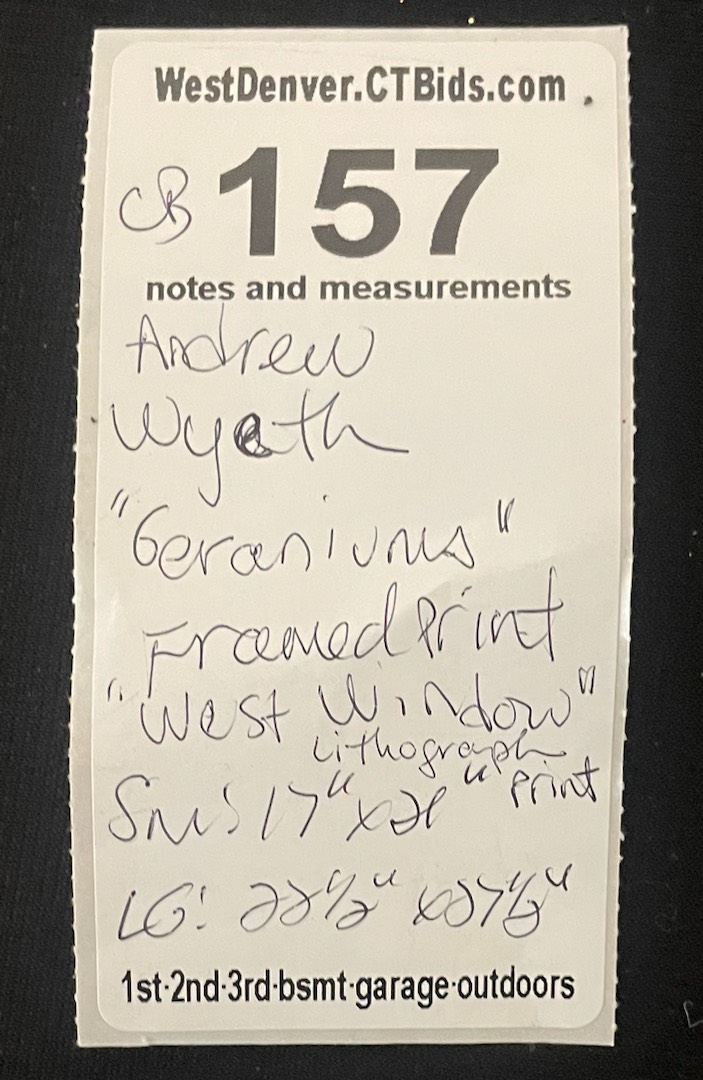 WestDenver.CTBids.com
CB 157
notes and measurements
Andrew
Wyeth
"Geraniums"
Framed Print
"West Window"
Lithograph
Print
Sm: 17" x 21"
LG: 22½" x 27½"
1st·2nd·3rd·bsmt·garage·outdoors